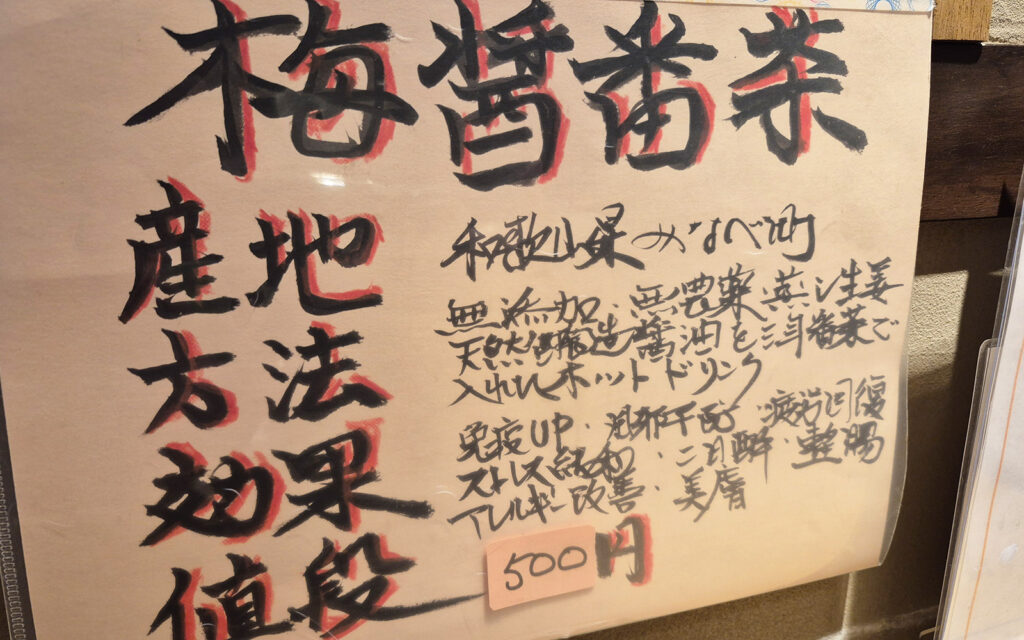 梅醤番茶
産地 和歌山県みなべ町
方法 無添加・無農薬・蒸し生姜
天然醸造醤油を三年番茶で
入れたホットドリンク
効果 免疫UP・風邪予防・疲労回復
ストレス緩和・二日酔・整腸
アレルギー改善・美膚
値段 500円